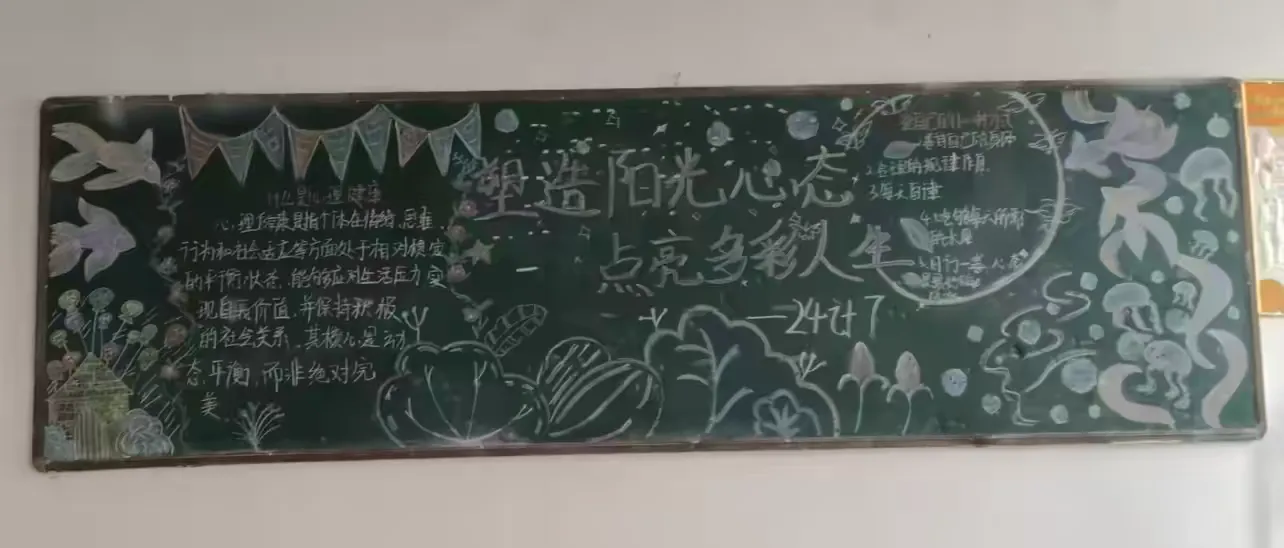 什么是心理健康
心理健康是指个体在情绪、思维、
行为和社会适应等方面处于相对稳定
的平衡状态,能够应对生活压力,实
现自我价值,并保持积极
的社会关系,其核心是动
态平衡,而非绝对完
美
塑造阳光心态
点亮多彩人生
—24计7
2.合理的规律作息
3.每天自律